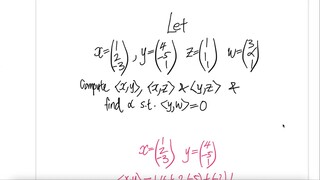 Let
x=(1 2 -3), y=(4 -5 1) z=(1 1 1) w=(3 α 1)
Compute <x,y>, <x,z> & <y,z> &
find α s.t. <y,w>=0
x=(1 2 -3) y=(4 -5 1)